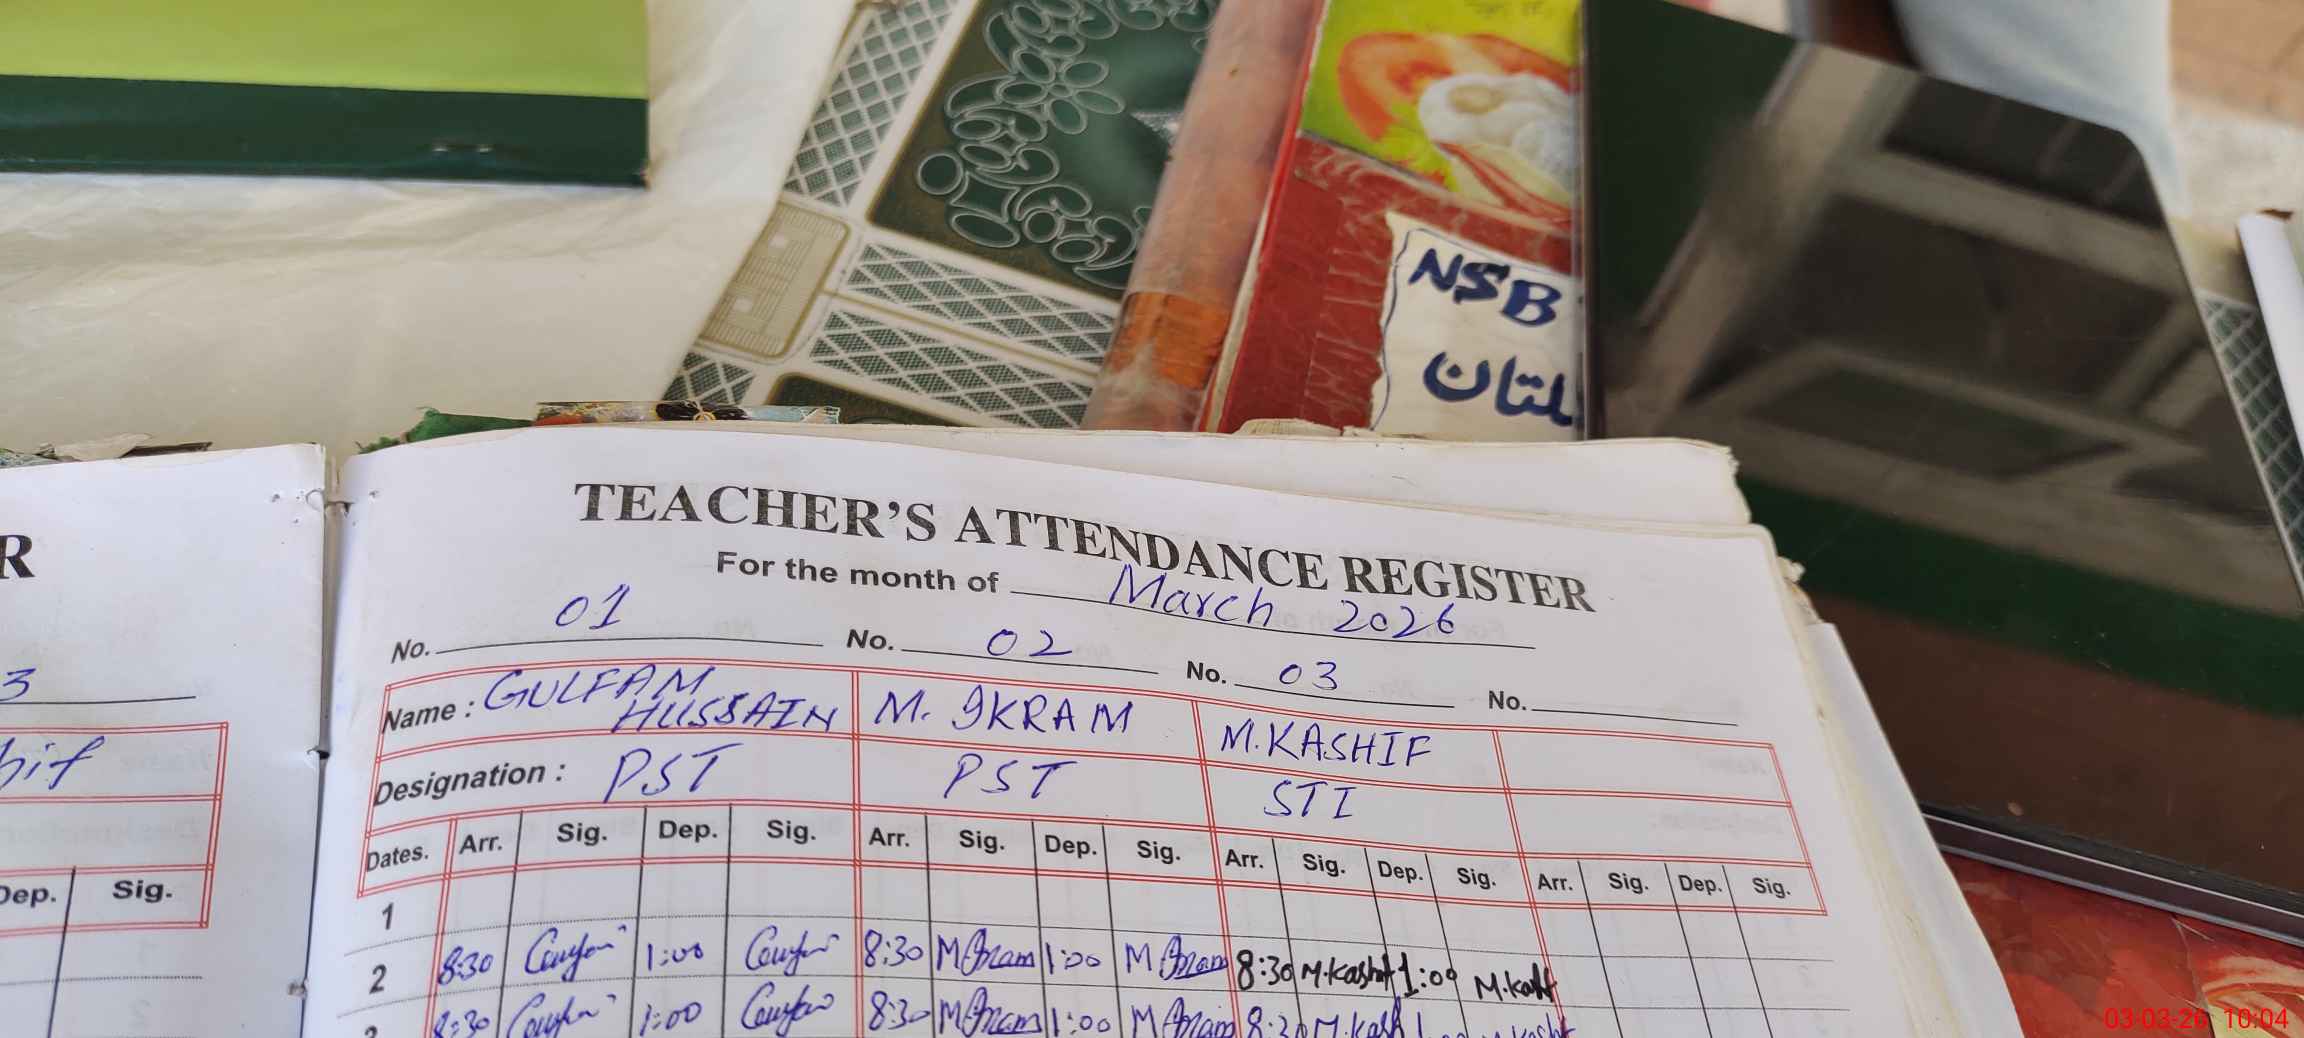 NSB
ملتان
R
TEACHER'S ATTENDANCE REGISTER
For the month of March 2026
No. 01 No. 02 No. 03 No.
3
Name : GULFAM HUSSAIN M. IKRAM M.KASHIF
hif
Designation : PST PST STI
Dates. Arr. Sig. Dep. Sig. Arr. Sig. Dep. Sig. Arr. Sig. Dep. Sig. Arr. Sig. Dep. Sig.
Dep. Sig.
1
2 8:30 1:00 8:30 M Ikram 1:00 M Ikram 8:30 M.Kashif 1:00
3 8:30 1:00 8:30 M Ikram 1:00 M Ikram 8:30
03-03-26 10:04